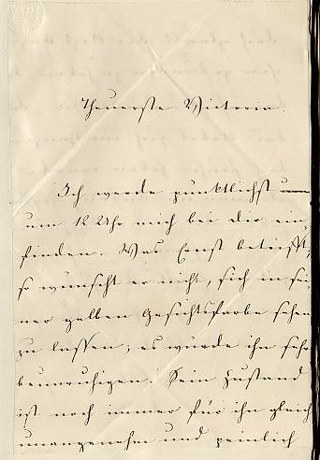 Theuerste Victoria.
Ich werde pünktlichst
um 12 Uhr mich bei dir ein
finden. Was Ernst betrifft,
so wünscht er nicht, sich in sei-
ner gelben Gesichtsfarbe sehen
zu lassen; es würde ihn sehr
beunruhigen. Sein Zustand
ist noch immer für ihn gleich
unangenehm und peinlich